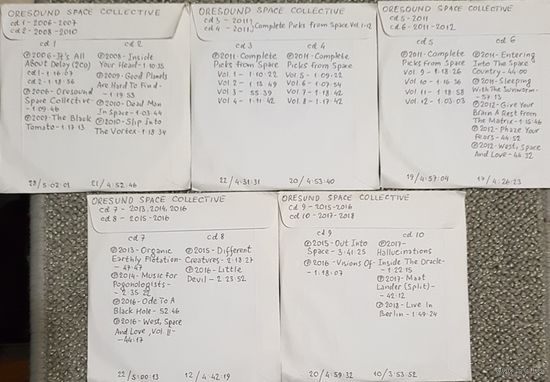 ORESUND SPACE COLLECTIVE
cd 1 - 2006-2007
cd 2 - 2008-2010
cd 1
℗2006-It's All
About Delay (2CD)
cd1-1:16:07
cd 1-18:56
℗2006-Oresound
Space Collective-
-1:09:46
℗2007-The Black
Tomato-1:17:13
cd 2
℗2008-Inside
Your Head-1:10:35
℗2009-Good Planets
Are Hard To Find-
-1:19:53
℗2010-Dead Man
In Space-1:03:44
℗2010-Slip Into
The Vortex-1:18:34
23/5:02:01
21/4:52:46
ORESUND SPACE COLLECTIVE
cd 3 - 2011
cd 4 - 2011
Complete Picks From Space Vol.1-12
cd 3
℗2011-Complete
Picks From Space
Vol. 1-1:10:22
Vol. 2-1:15:49
Vol. 3-55:39
Vol. 4-1:11:42
cd 4
℗2011-Complete
Picks From Space
Vol. 5-1:09:22
Vol. 6-1:07:54
Vol. 7-1:18:42
Vol. 8-1:17:42
22/4:31:31
20/4:53:40
ORESUND SPACE COLLECTIVE
cd 5 - 2011
cd 6 - 2011-2012
cd 5
℗2011-Complete
Picks From Space
Vol. 9-1:18:26
Vol. 10-1:16:36
Vol. 11-1:18:58
Vol. 12-1:03:03
cd 6
℗2011-Entering
Into The Space
Country-44:00
℗2011-Sleeping
With The Sunworm-
-57:13
℗2012-Give Your
Brain A Rest From
The Matrix-1:15:46
℗2012-Phaze Your
Fears-44:52
℗2012-West, Space
And Love-44:32
19/4:57:04
17/4:26:23
ORESUND SPACE COLLECTIVE
cd 7 - 2013, 2014, 2016
cd 8 - 2015-2016
cd 7
℗2013-Organic
Earthly Flotation-
-47:47
℗2014-Music For
Pogonologists-
-2:35:22
℗2016-Ode To A
Black Hole-52:46
℗2016-West, Space
And Love, Vol. II-
-44:17
cd 8
℗2015-Different
Creatures-2:18:27
℗2016-Little
Devil-2:23:52
22/5:00:13
12/4:42:19
ORESUND SPACE COLLECTIVE
cd 9 - 2015-2016
cd 10 - 2017-2018
cd 9
℗2015-Out Into
Space-3:41:25
℗2016-Visions Of-
-1:18:07
cd 10
℗2017-
Hallucinations
Inside The Oracle-
-1:22:15
℗2017-Maat
Lander (Split)-
-42:12
℗2018-Live In
Berlin-1:49:24
20/4:59:32
10/3:53:52